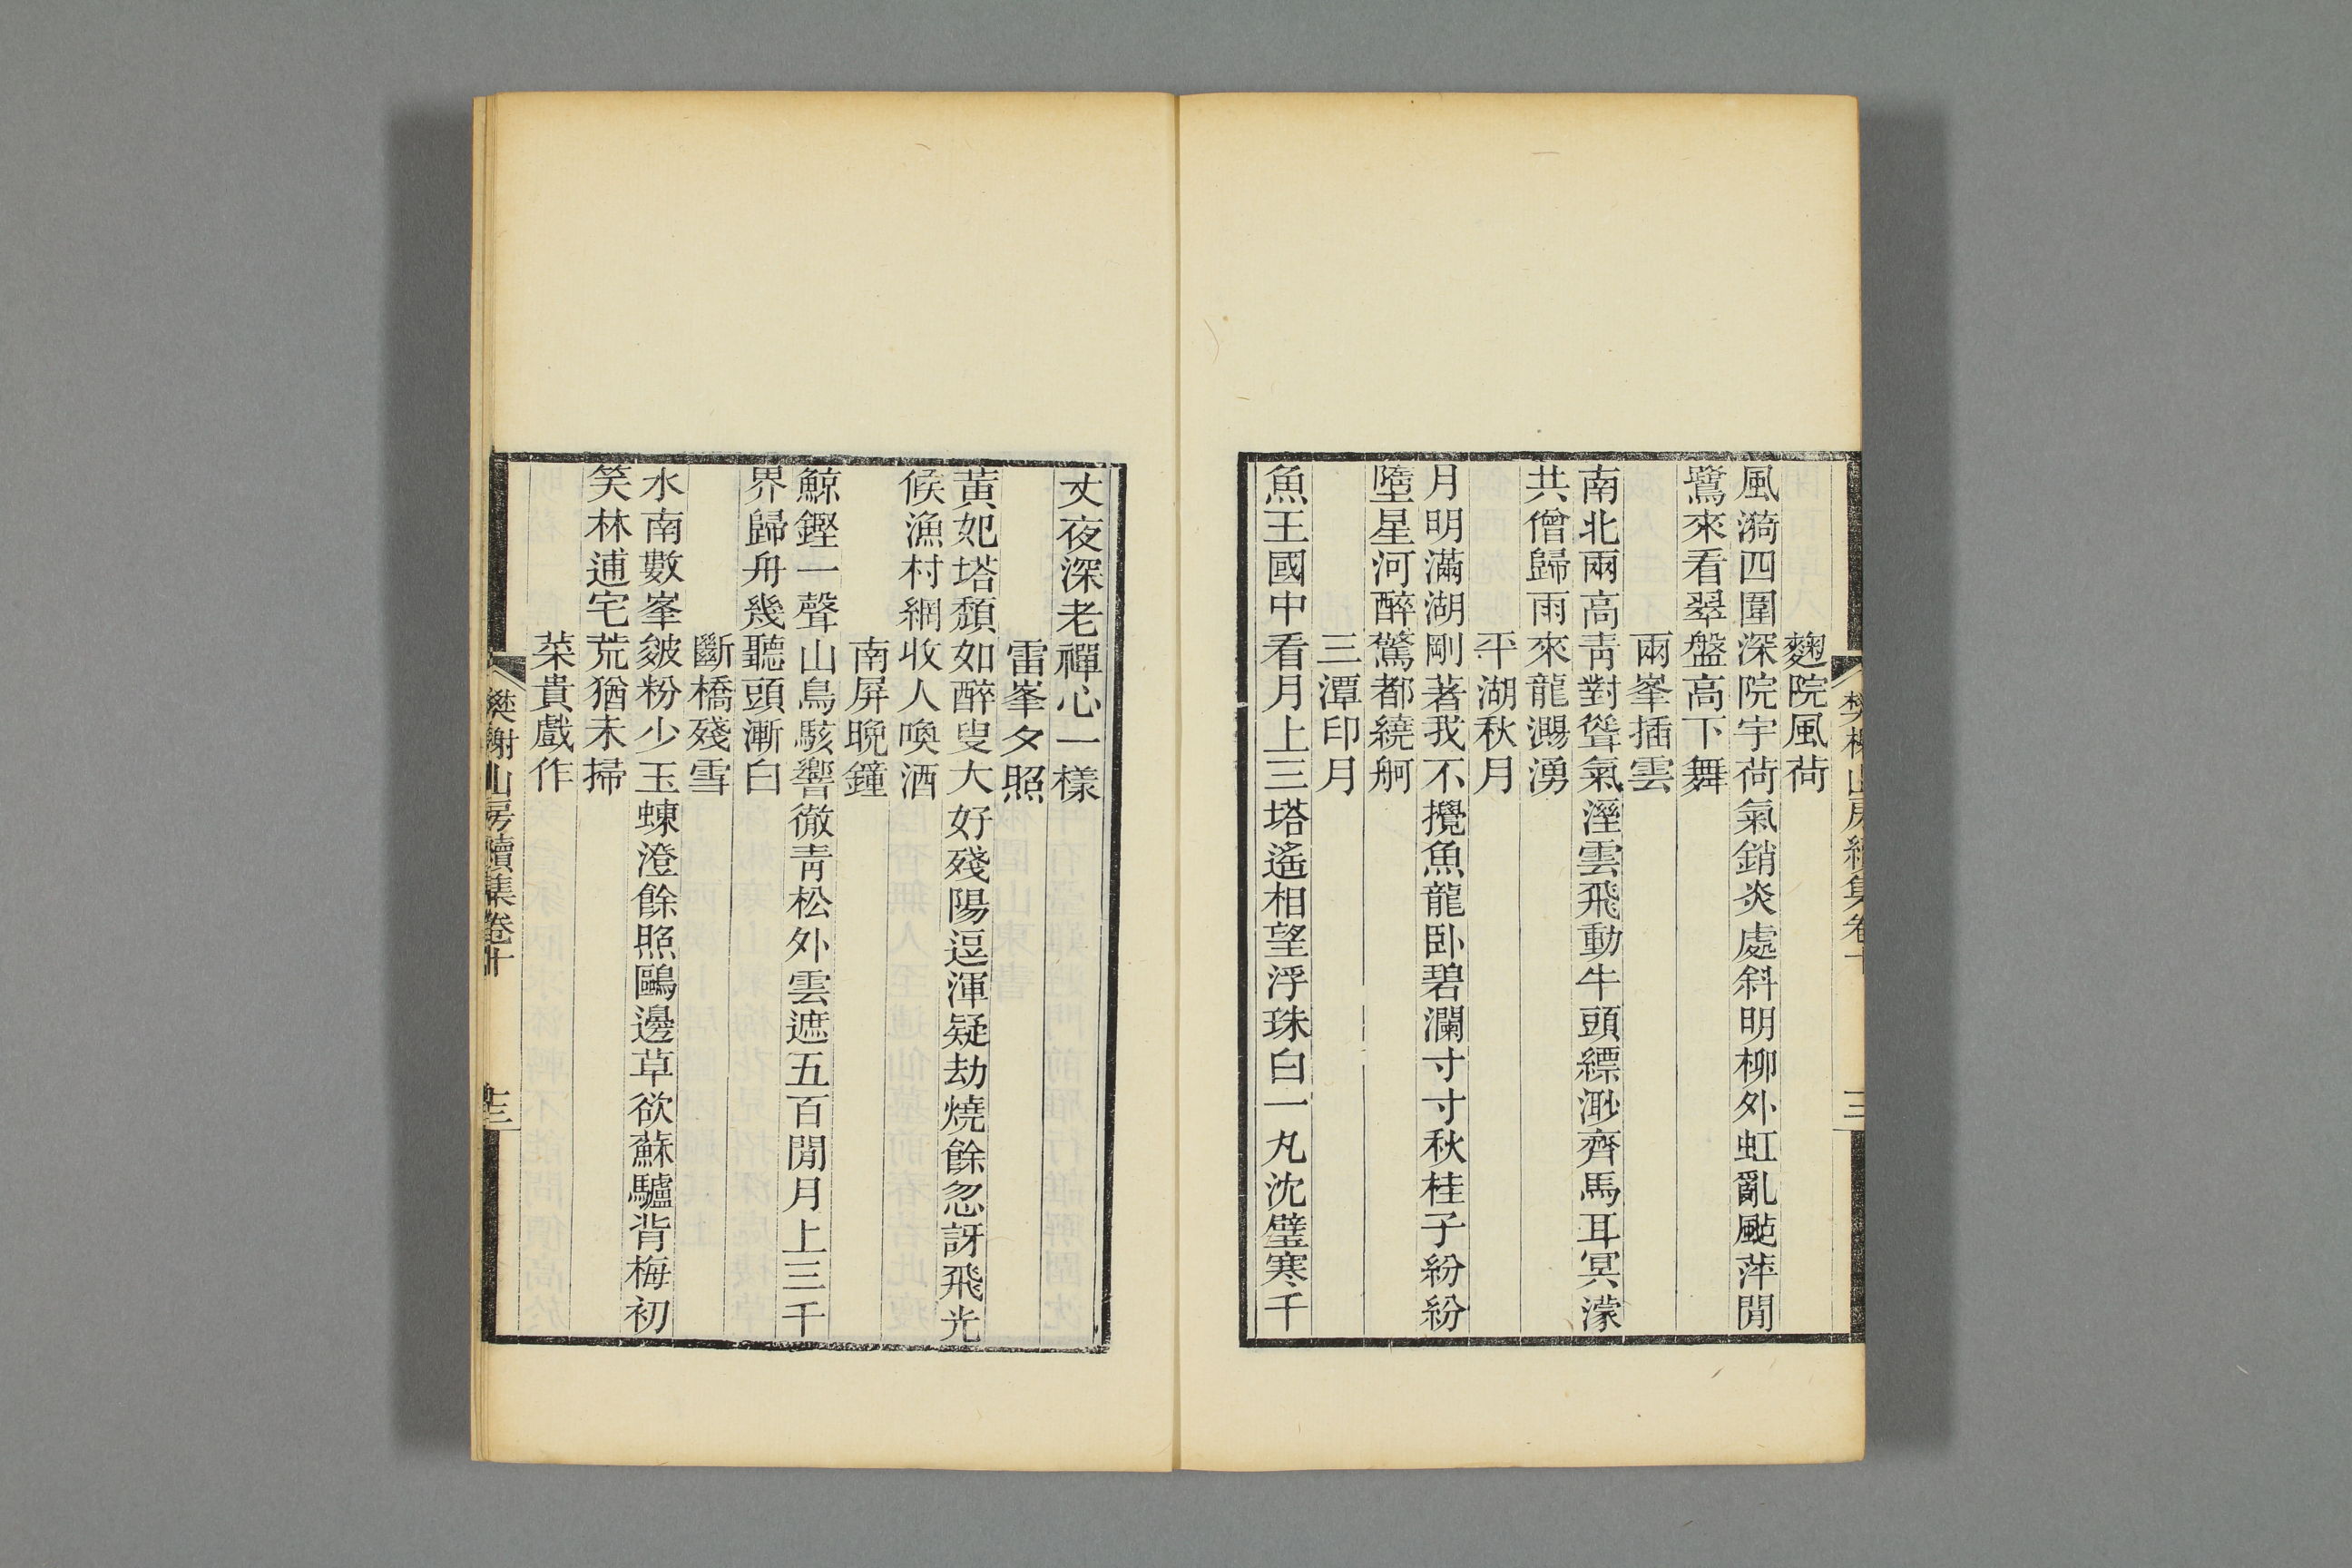 麴院風荷
風漪四圍深院宇荷氣銷炎處斜明柳外虹亂颭萍閒
鷺來看翠盤高下舞
兩峯插雲
南北兩高靑對聳氣溼雲飛動牛頭縹渺齊馬耳冥濛
共僧歸雨來龍𤄼湧
平湖秋月
月明滿湖剛著我不攪魚龍卧碧瀾寸寸秋桂子紛紛
墮星河醉驚都繞舸
三潭印月
魚王國中看月上三塔遙相望浮珠白一丸沈璧寒千
丈夜深老禪心一樣
雷峯夕照
黃妃塔頹如醉叟大好殘陽逗渾疑劫燒餘忽訝飛光
候漁村網收人喚酒
南屏晚鐘
鯨鏗一聲山鳥駭響徹靑松外雲遮五百閒月上三千
界歸舟幾聽頭漸白
斷橋殘雪
水南數峯皴粉少玉蝀澄餘照鷗邊草欲蘇驢背梅初
笑林逋宅荒猶未掃
菜貴戲作
樊榭山房續集卷十